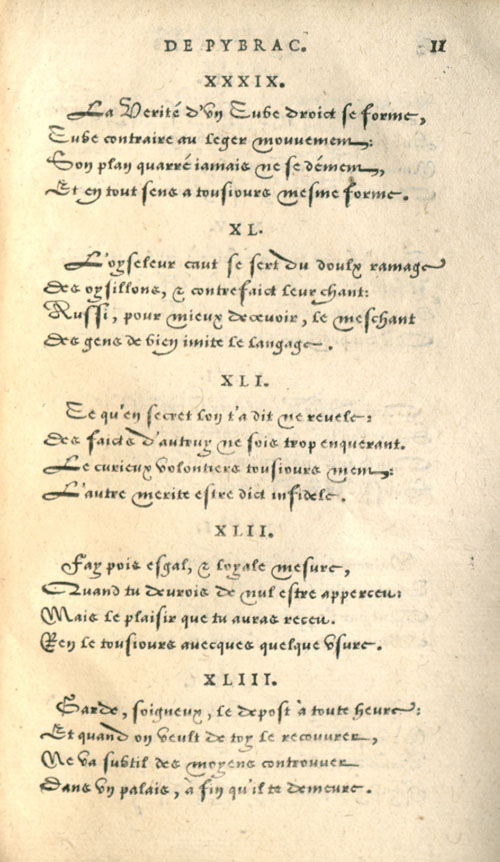 DE PYBRAC. 11
XXXIX.
La Verité d'vn Cube droict se forme,
Cube contraire au leger mouuement:
Son plan quarré iamais ne se dément,
Et en tout sens a tousiours mesme forme.
XL.
L'oyseleur caut se sert du doulx ramage
Des oysillons, & contrefaict leur chant:
Aussi, pour mieux deceuoir, le meschant
Des gens de bien imite le langage.
XLI.
Ce qu'en secret lon t'a dit ne reuele:
Des faicts d'autruy ne sois trop enquerant.
Le curieux volontiers tousiours ment:
L'autre merite estre dict infidele.
XLII.
Fay pois esgal, & loyale mesure,
Quand tu deurois de nul estre apperceu:
Mais le plaisir que tu auras receu.
Ren le tousiours auecques quelque vsure.
XLIII.
Garde, soigneux, le depost à toute heure:
Et quand on veult de toy le recouurer,
Ne va subtil des moyens controuuer
Dans vn palais, à fin qu'il te demeure.